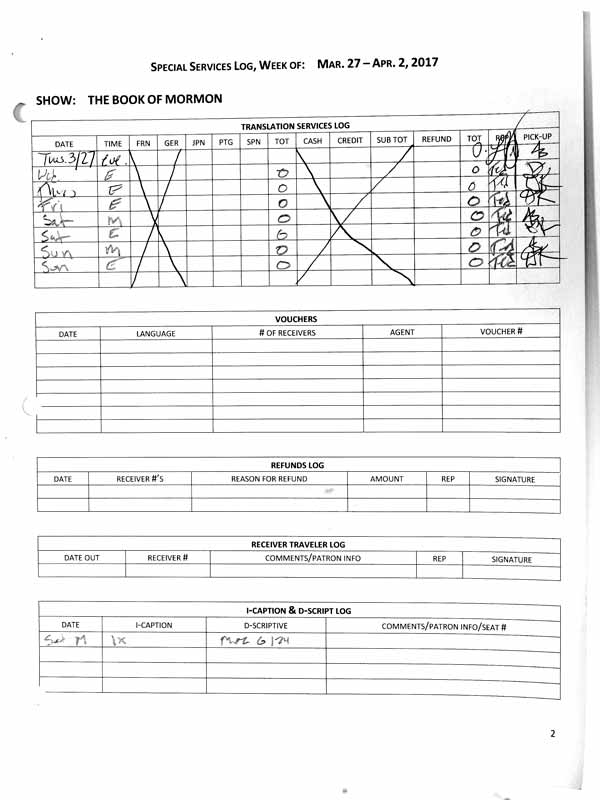 SPECIAL SERVICES LOG, WEEK OF: MAR. 27 – APR. 2, 2017
SHOW: THE BOOK OF MORMON
TRANSLATION SERVICES LOG
DATE TIME FRN GER JPN PTG SPN TOT CASH CREDIT SUB TOT REFUND TOT REP PICK-UP
Tues. 3/27 Eve.
E 0 0 Ted
Thurs E 0 0 Ted
Fri E 0 0 Ted
Sat M 0 0 Ted
Sat E 0 0 Ted
Sun M 0 0 Ted
Sun E 0 0 Ted
VOUCHERS
DATE LANGUAGE # OF RECEIVERS AGENT VOUCHER #
REFUNDS LOG
DATE RECEIVER #'S REASON FOR REFUND AMOUNT REP SIGNATURE
RECEIVER TRAVELER LOG
DATE OUT RECEIVER # COMMENTS/PATRON INFO REP SIGNATURE
I-CAPTION & D-SCRIPT LOG
DATE I-CAPTION D-SCRIPTIVE COMMENTS/PATRON INFO/SEAT #
Sat M 1x
2